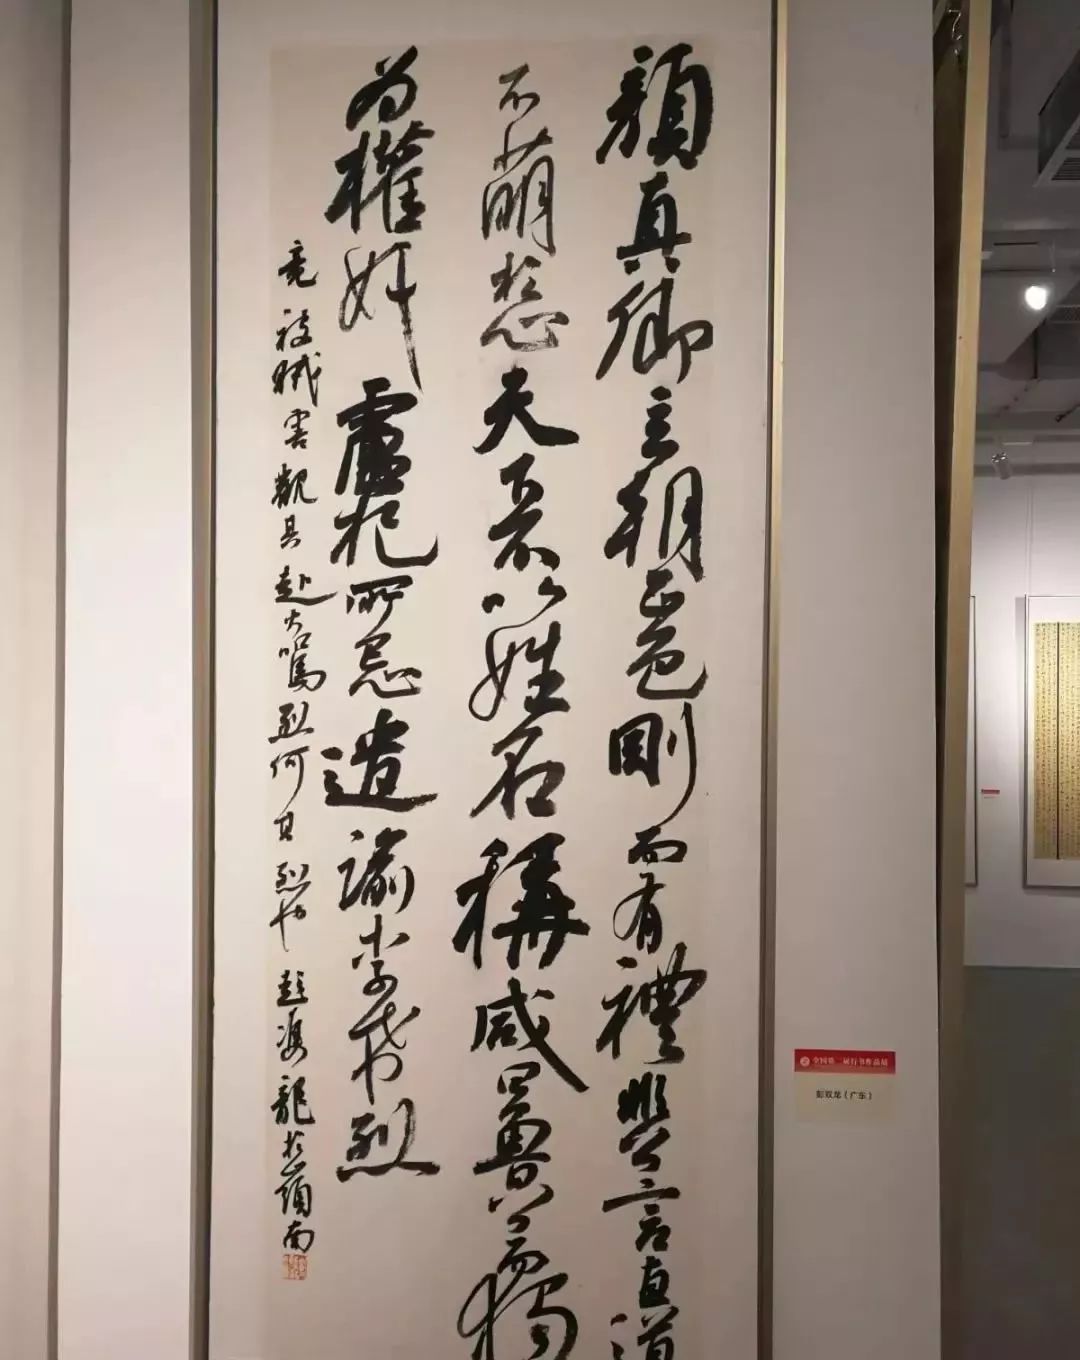 顏真卿立朝正色剛而有禮非公言直道
不萌於心天下不以姓名稱咸曰魯公而獨
為權奸盧杞所忌遣諭李希烈
竟被賊害觀其赴火罵烈何其烈也 彭雙龍於嶺南
全国第二届行书作品展
彭双龙（广东）